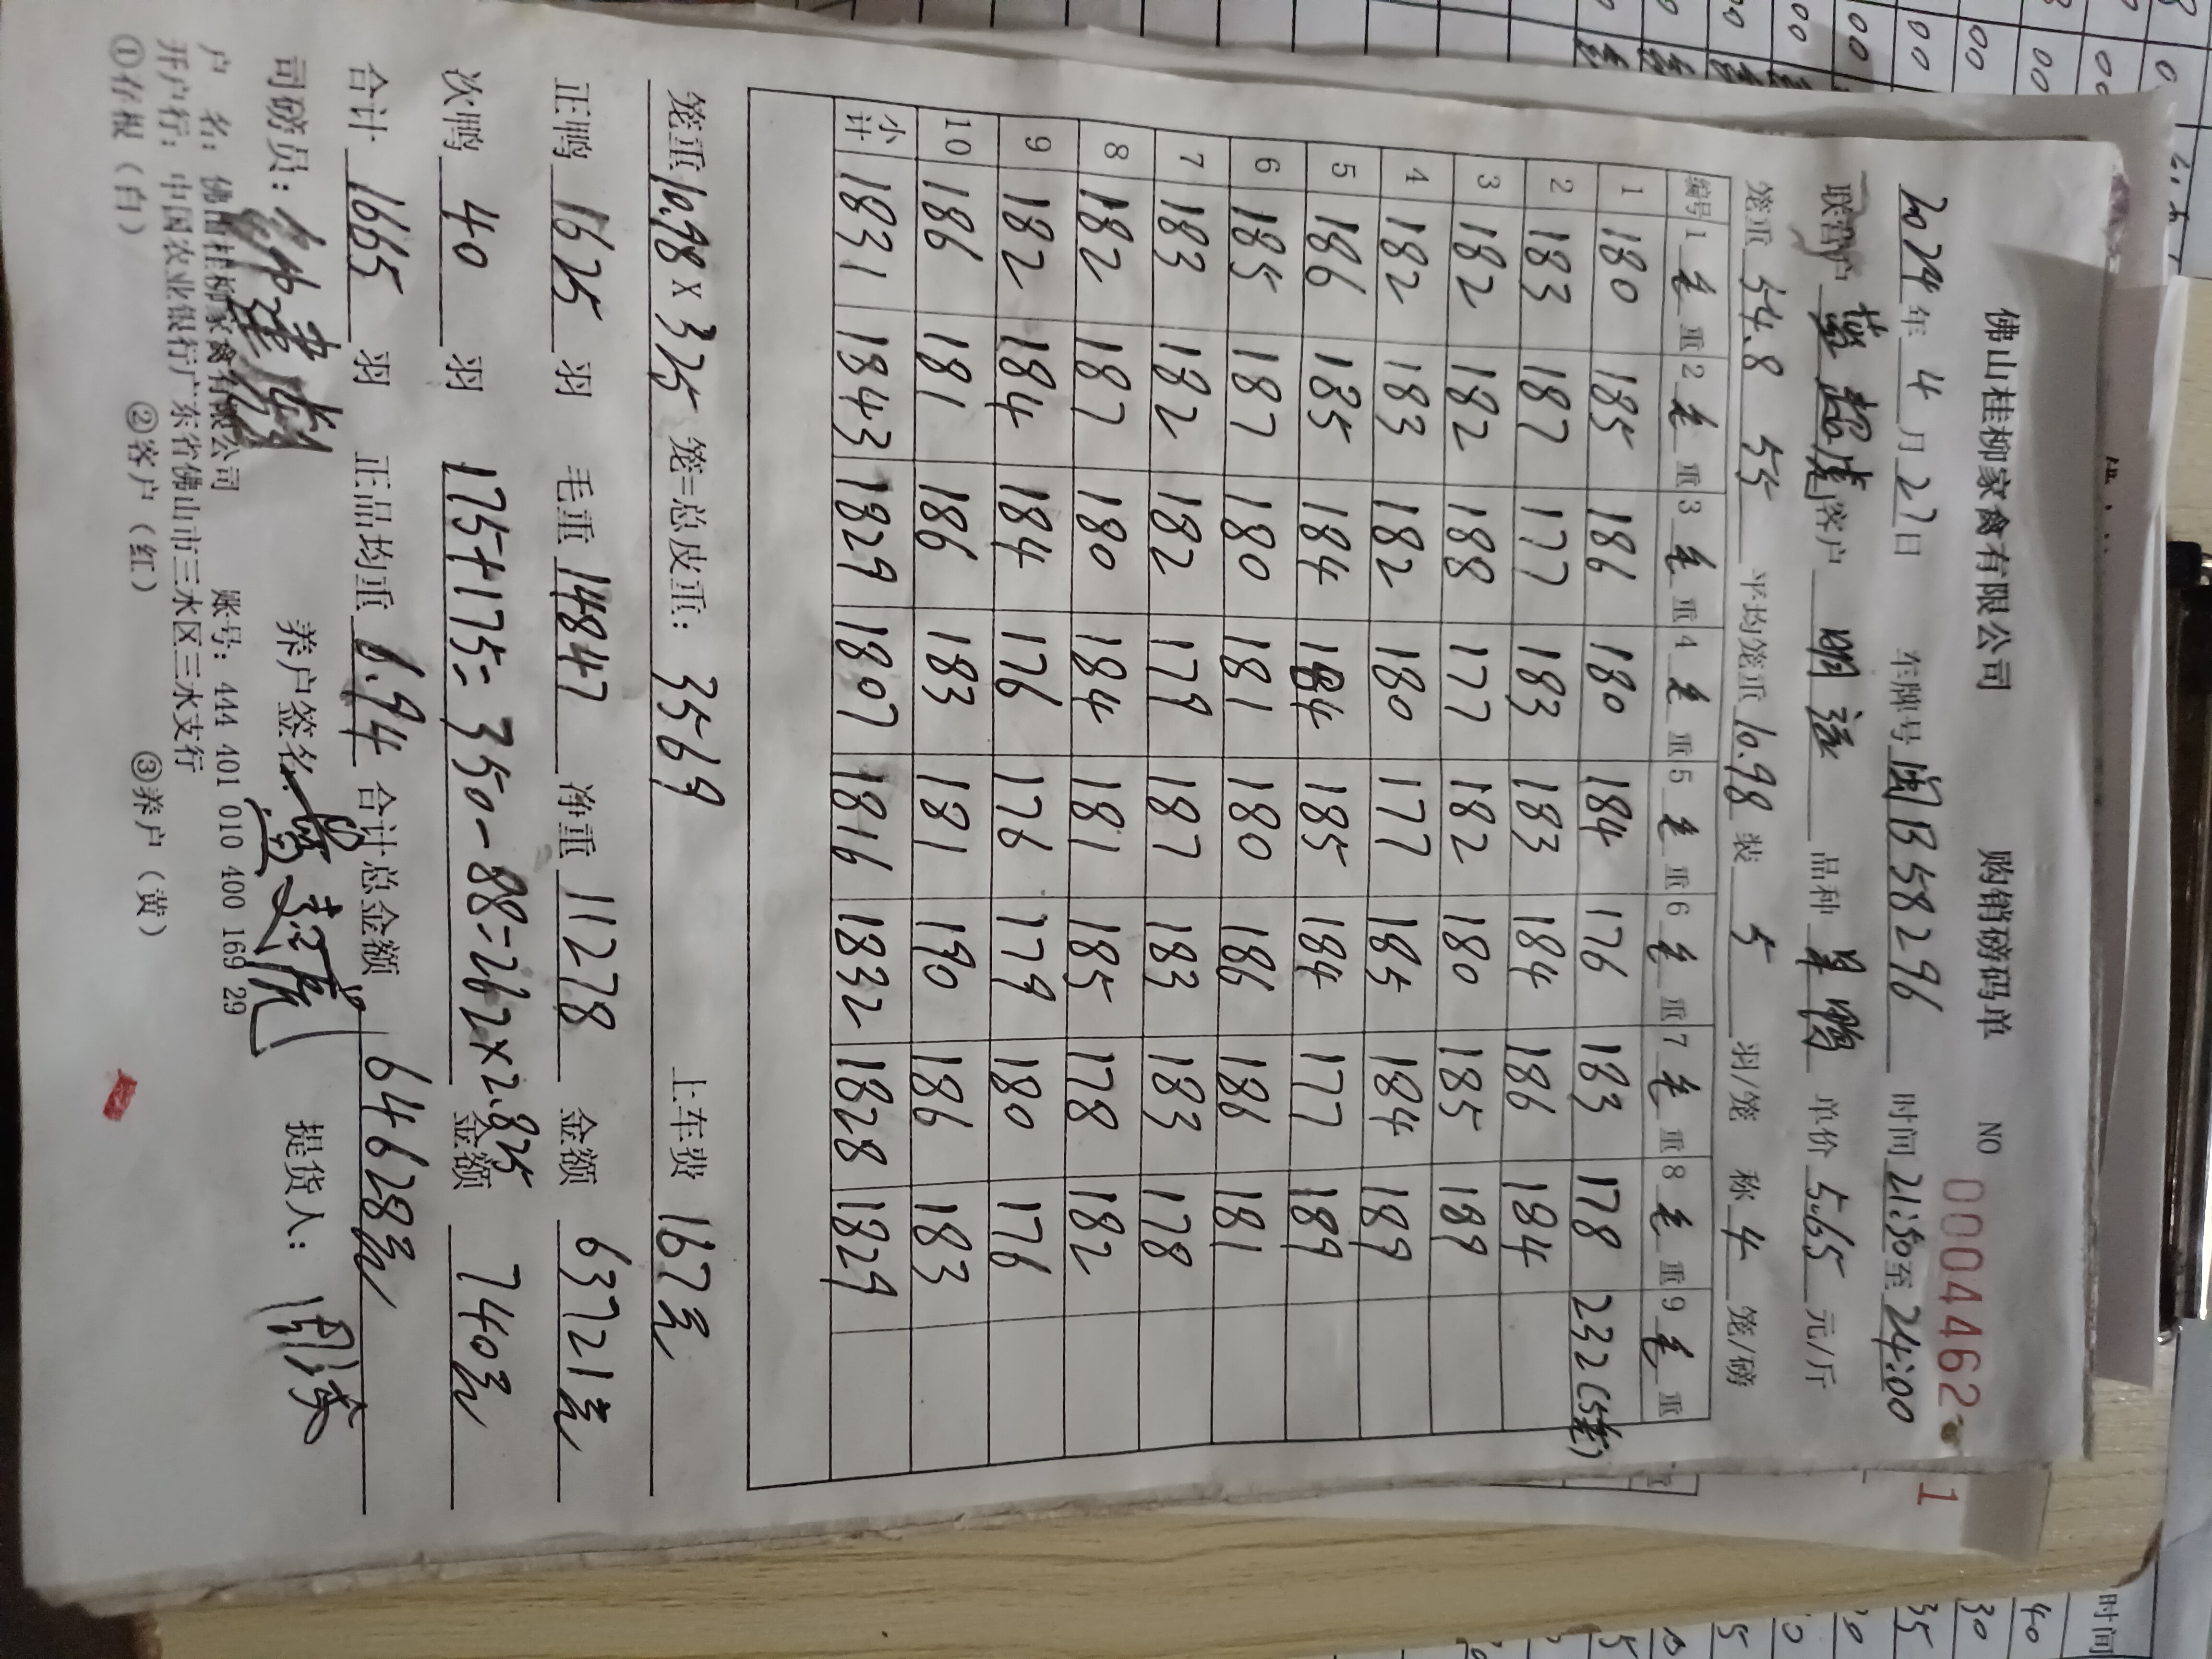 佛山桂柳家禽有限公司 购销磅码单 NO 0004462
2024年4月27日 车牌号闽B58296 时间21:50至24:00
联营户 客户 明 品种 单价5.65元/斤
笼重54.8 55 平均笼重10.98装5羽/笼 称4笼/磅
编号 1毛重 2毛重 3毛重 4毛重 5毛重 6毛重 7毛重 8毛重 9毛重
1 180 185 186 180 184 176 183 178 232(5笼)
2 183 187 177 183 183 184 186 184
3 182 182 188 177 182 180 185 189
4 182 183 182 180 177 185 184 189
5 186 185 184 184 185 184 177 189
6 185 187 180 181 180 186 186 181
7 183 182 182 179 187 183 183 178
8 182 187 180 184 181 185 178 182
9 182 184 184 176 176 179 180 176
10 186 181 186 183 181 190 186 183
小计 1831 1843 1829 1807 1816 1832 1828 1829
笼重10.98×325笼=总皮重：3569 上车费167元
正鸭1625羽 毛重14847 净重11278 金额63721元
次鸭40羽 175+175=350-88=262×2.825 金额740元
合计1665羽 正品均重6.94 合计总金额64628元
司磅员： 养户签名： 提货人：
户 名：佛山桂柳家禽有限公司 账号：444 401 010 400 169 29
开户行：中国农业银行广东省佛山市三水区三水支行
①存根（白） ②客户（红） ③养户（黄）